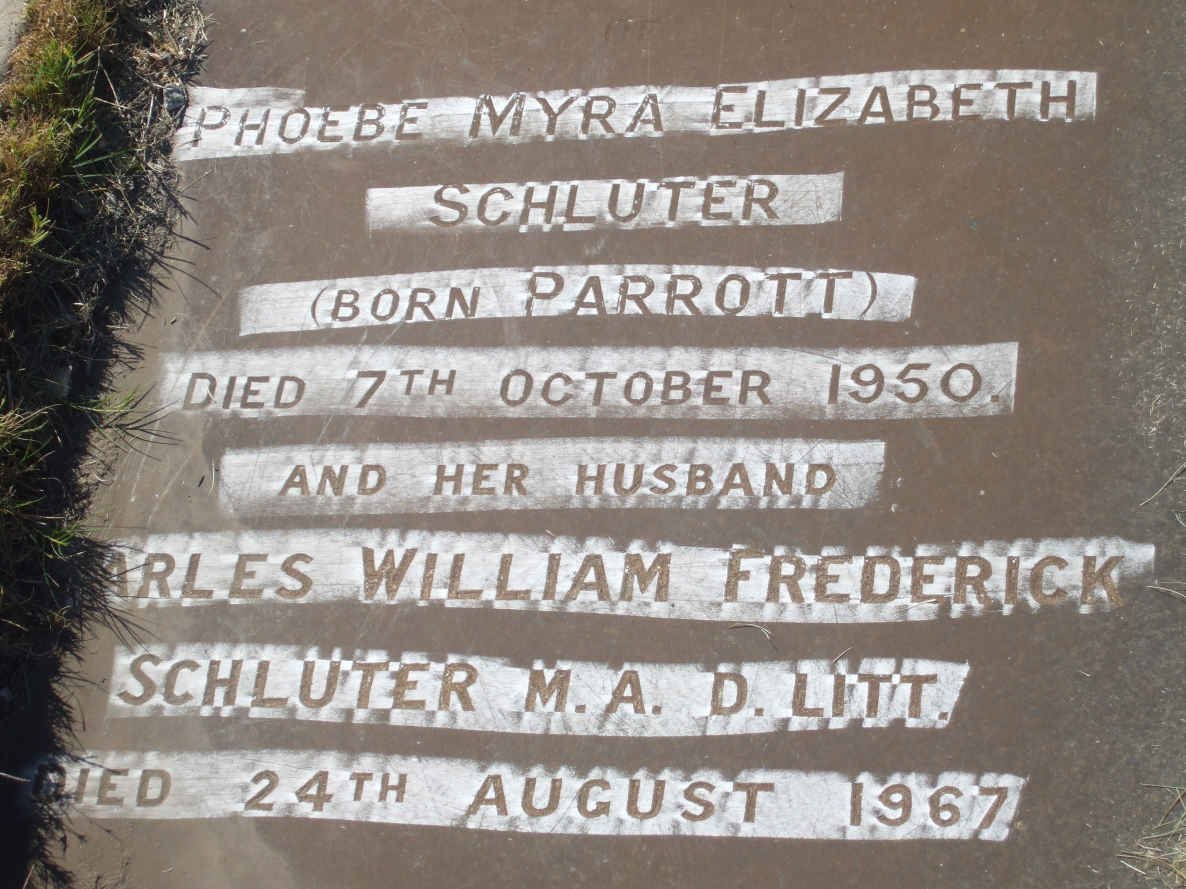 PHOEBE MYRA ELIZABETH
SCHLUTER
(BORN PARROTT)
DIED 7TH OCTOBER 1950.
AND HER HUSBAND
ARLES WILLIAM FREDERICK
SCHLUTER M.A. D. LITT.
DIED 24TH AUGUST 1967